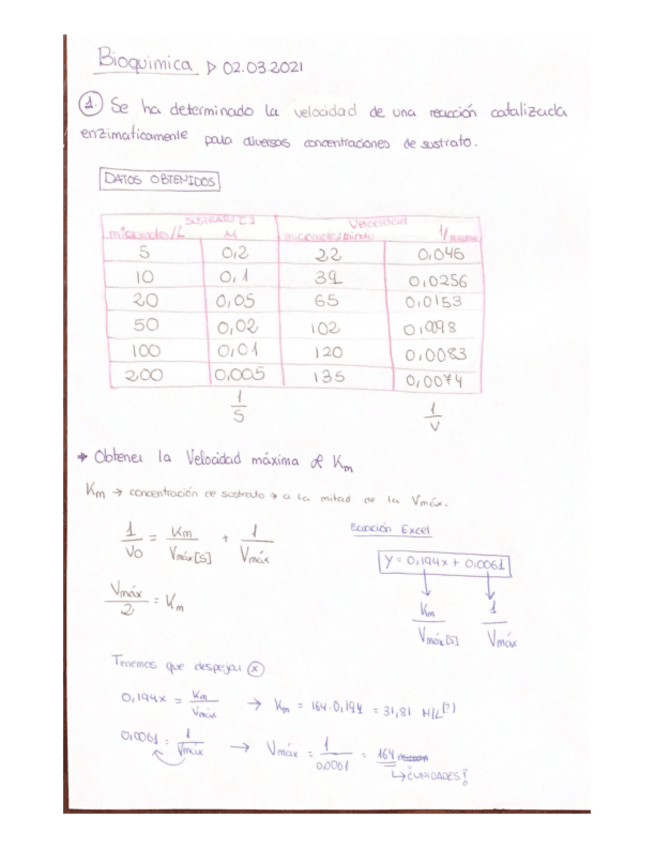 Bioquimica ▷ 02.03.2021
1. Se ha determinado la velocidad de una reacción catalizada
enzimaticamente para diversas concentraciones de sustrato.
DATOS OBTENIDOS
SUSTRATO [ ] Velocidad
M 1/
5 0,2 22 0,046
10 0,1 39 0,0256
20 0,05 65 0,0153
50 0,02 102 0,0098
100 0,01 120 0,0083
200 0,005 135 0,0074
1/S 1/V
→ Obtener la Velocidad máxima & Km
Km → concentración de sustrato → a la mitad de la Vmáx.
1/Vo = Km/Vmáx[S] + 1/Vmáx
Ecuación Excel
Y = 0,194x + 0,0061
Vmáx/2 = Km
Km/Vmáx[S] 1/Vmáx
Tenemos que despejar x
0,194x = Km/Vmáx → Km = 164·0,194 = 31,81 M/L(?)
0,0061 = 1/Vmáx → Vmáx = 1/0,0061 = 164
↳ ¿UNIDADES?